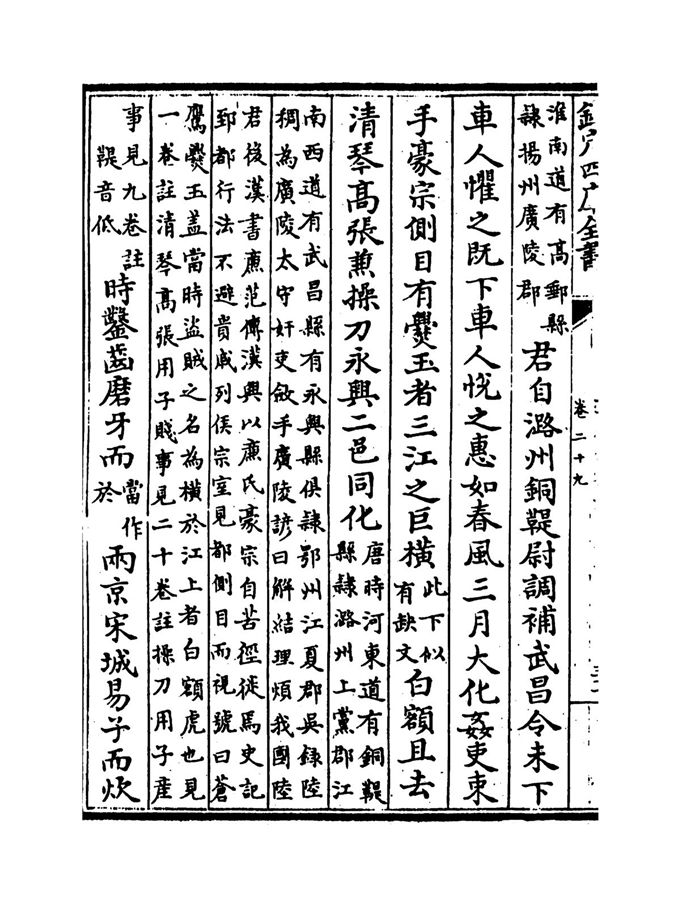 欽定四庫全書
卷二十九
淮南道有高郵縣
隷揚州廣陵郡
君自潞州銅鞮尉調補武昌令未下
車人懼之既下車人悅之惠如春風三月大化姦吏束
手豪宗側目有爨玉者三江之巨橫
此下似
有缺文
白額且去
清琴高張兼操刀永興二邑同化
唐時河東道有銅鞮
縣隷潞州上黨郡江
南西道有武昌縣有永興縣俱隷鄂州江夏郡吳録陸
稠為廣陵太守奸吏斂手廣陵諺曰解結理煩我國陸
君後漢書亷范傳漢興以亷氏豪宗自苦徑徙焉史記
郅都行法不避貴戚列侯宗室見都側目而視號曰蒼
鷹爨玉盖當時盜賊之名為橫於江上者白額虎也見
一卷註清琴高張用子賤事見二十卷註操刀用子産
事見九卷註
鞮音低
時鑿齒磨牙而
當作
於
兩京宋城易子而炊